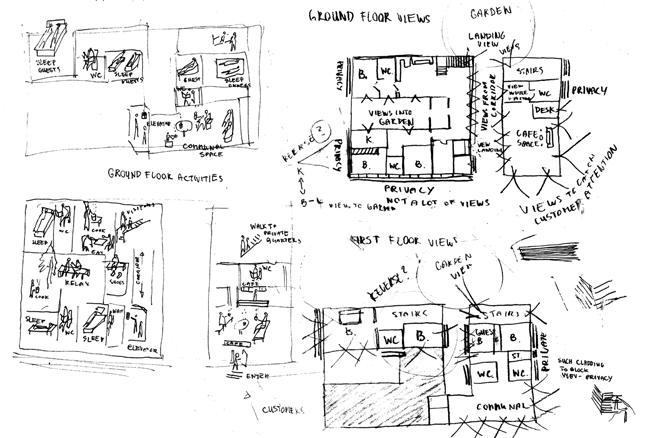 SLEEP
GUESTS
WC
SLEEP
GUESTS
GUEST
SLEEP
GUESTS
WC
ELEVATOR
COMMUNAL
SPACE
GROUND FLOOR ACTIVITIES
SLEEP
WC
COOK
EAT
RELAX
COOK
SLEEP
WC
SLEEP
ELEVATOR
WALK TO
PRIVATE
QUARTERS
WC
CAFE
CAFE
ENTER
CUSTOMERS
GROUND FLOOR VIEWS
GARDEN
LANDING
VIEW
VIEWS
PRIVACY
B.
WC
VIEWS INTO
GARDEN
VIEWS FROM
CORRIDOR
STAIRS
VIEW
WHILE
WC
PRIVACY
DESK
CAFE
SPACE
K
?
K
K.
B.
WC
B.
PRIVACY
VIEW
LANDING
PRIVACY
NOT A LOT OF VIEWS
VIEW TO GARDEN
VIEWS TO GARDEN
CUSTOMER ATTENTION
FIRST FLOOR VIEWS
REVERSE?
GARDEN
VIEW
STAIRS
B.
WC
B.
STAIRS
GUEST
B
B.
WC.
ST
WC.
PRIVATE
COMMUNAL
SUCH CLADDING
TO BLOCK
VIEW - PRIVACY